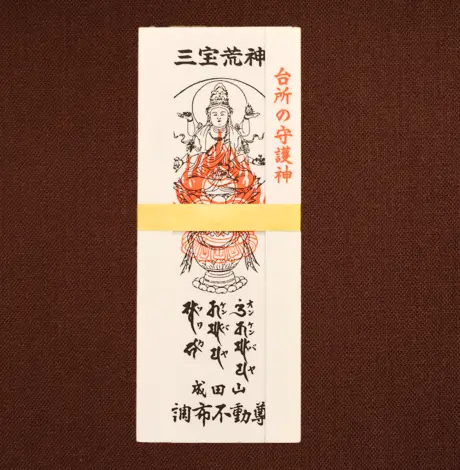 三宝荒神
台所の守護神
オンケンバヤ
ケンバヤ
ソワカ
成田山
調布不動尊